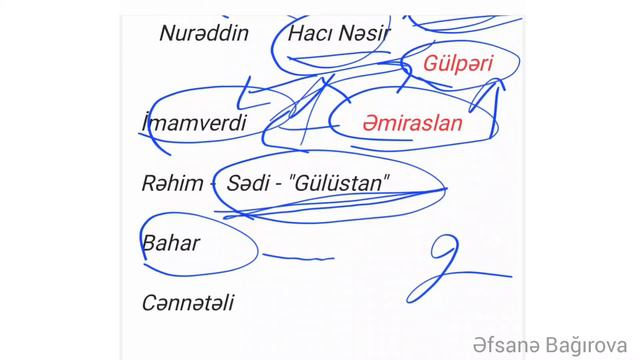 Nurəddin Hacı Nəsir
Gülpəri
İmamverdi Əmiraslan
Rəhim - Sədi - "Gülüstan"
Bahar
Cənnətəli
Əfsanə Bağırova